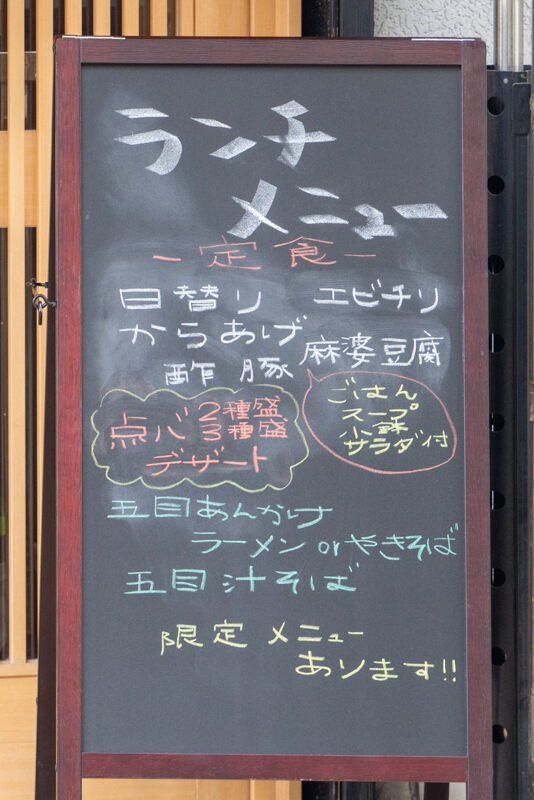 ランチ
メニュー
ー定食ー
日替り エビチリ
からあげ 麻婆豆腐
酢豚
ごはん
スープ
小鉢
サラダ付
点心 2種盛
3種盛
デザート
五目あんかけ
ラーメン or やきそば
五目汁そば
限定メニュー
あります!!